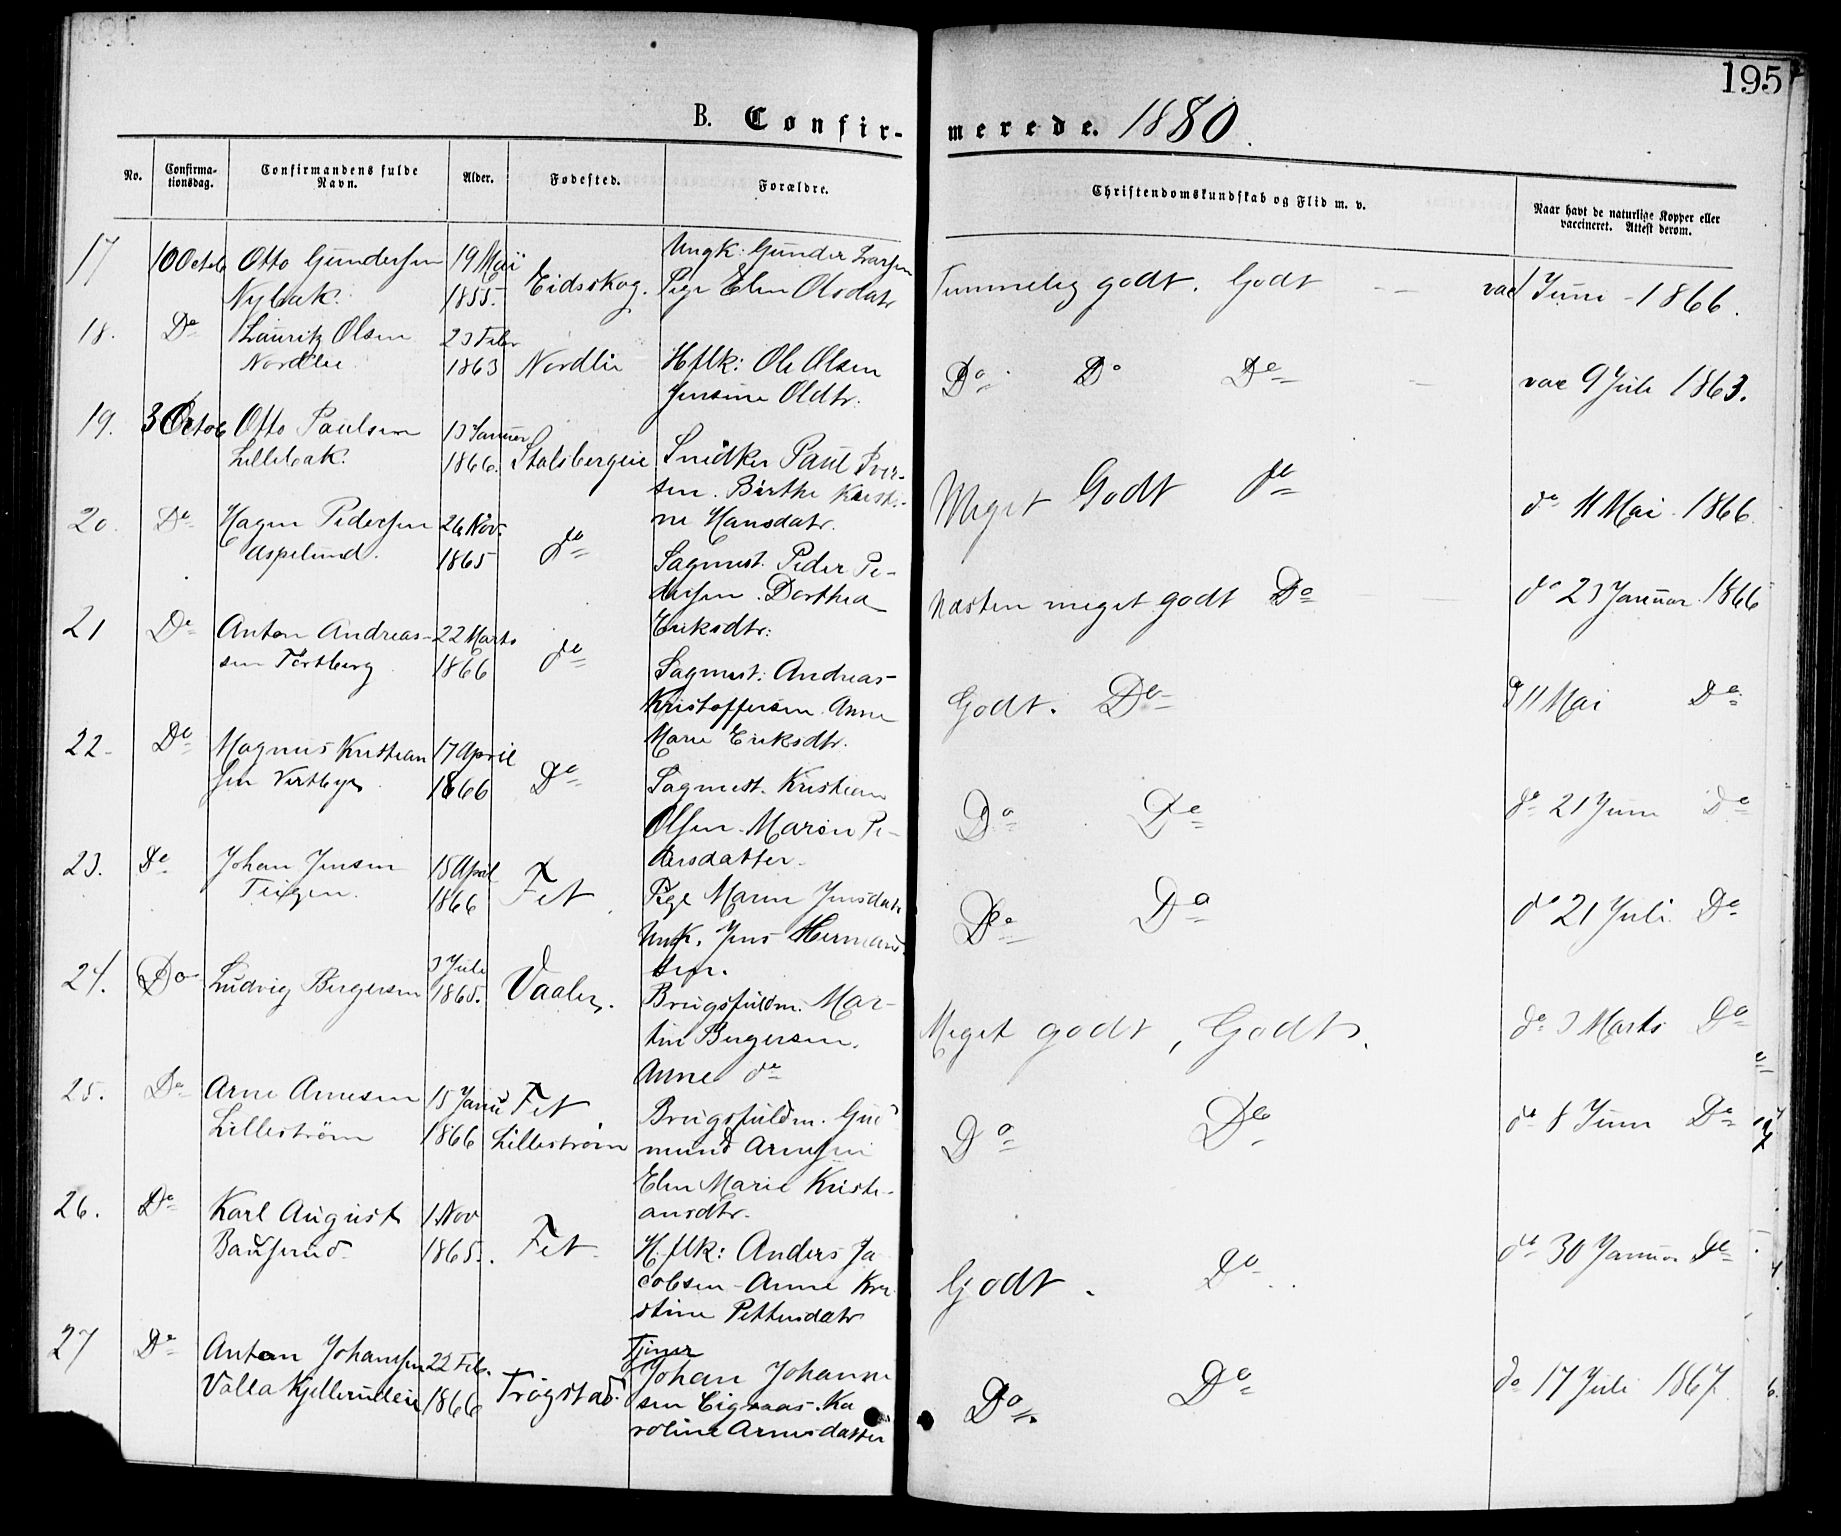 195
B. Confir- merede. 1880.
No. Confirma-tionsdag. Confirmandens fulde Navn. Alder. Fødested. Forældre. Christendomskundskab og Flid m. v. Naar havt de naturlige Kopper eller vaccineret. Attest derom.
17 10 Octob Otto Gundersen 19 Mai Eidsskog. Ungk. Gunder Larsen Temmelig godt. Godt vac 1 Juni - 1866.
Nybak. 1855. Pige Elen Olsdatr
18. Do Lauritz Olsen 23 Febr Nordlie Hflk: Ole Olsen Do Do Do vac 9 Juli 1863.
Nordlie 1863 Jensine Oldtr.
19. 3 Octob Otto Paulsen 13 Januer Stalsbergeie Snidker Paul Iver- Meget Godt do do 11 Mai 1866.
Lillebak. 1866. sen. Birthe Kristi-
ne Hansdatr.
20. Do Hagen Pedersen 26 Nov. do Sagmest. Peder Pe- Næsten meget godt Do do 23 Januar 1866
Aspelund. 1865 dersen. Dorthea
Eriksdtr:
21 Do Anton Andreas- 22 Marts do Sagmest. Andreas Godt. Do do 11 Mai Do
sen Tørtberg 1866 Kristoffersen. Anne
Marie Eriksdtr.
22. Do Magnus Kristian 17 April Do Sagmest. Kristian Do Do do 21 Juni Do
sen 1866 Olsen. Maren Pe-
dersdatter.
23. Do Johan Jensen 15 April Fet Pige Maren Jensdatr Do Do do 21 Juli Do
Teigen. 1866 Unk. Jens Herman-
sen.
24. Do Ludvig Bergersen 3 Juli 1865. Vaaler. Brugsfuldm. Mar- Meget godt, Godt. do 3 Marts Do
tin Bergersen.
Anne do
25. Do Arne Arnesen 15 Janu Fet Brugsfuldm. Gud Do Do do 8 Juni Do
Lillestrøm 1866 Lillestrøm mund Arnesen
Elen Marie Kristi-
ansdtr.
26. Do Karl August 1 Nov Fet H.flk: Anders Ja Godt. Do do 30 Januar Do
1865. cobsen - Anne Kri
stine Pettersdatr
27 Do Anton Johansen 22 Feb. Trøgstad. Tjener Do Do do 17 Juli 1867
Valla Kjellerudeie 1866 Johan Johanne
sen. Ka
roline Arnesdatter